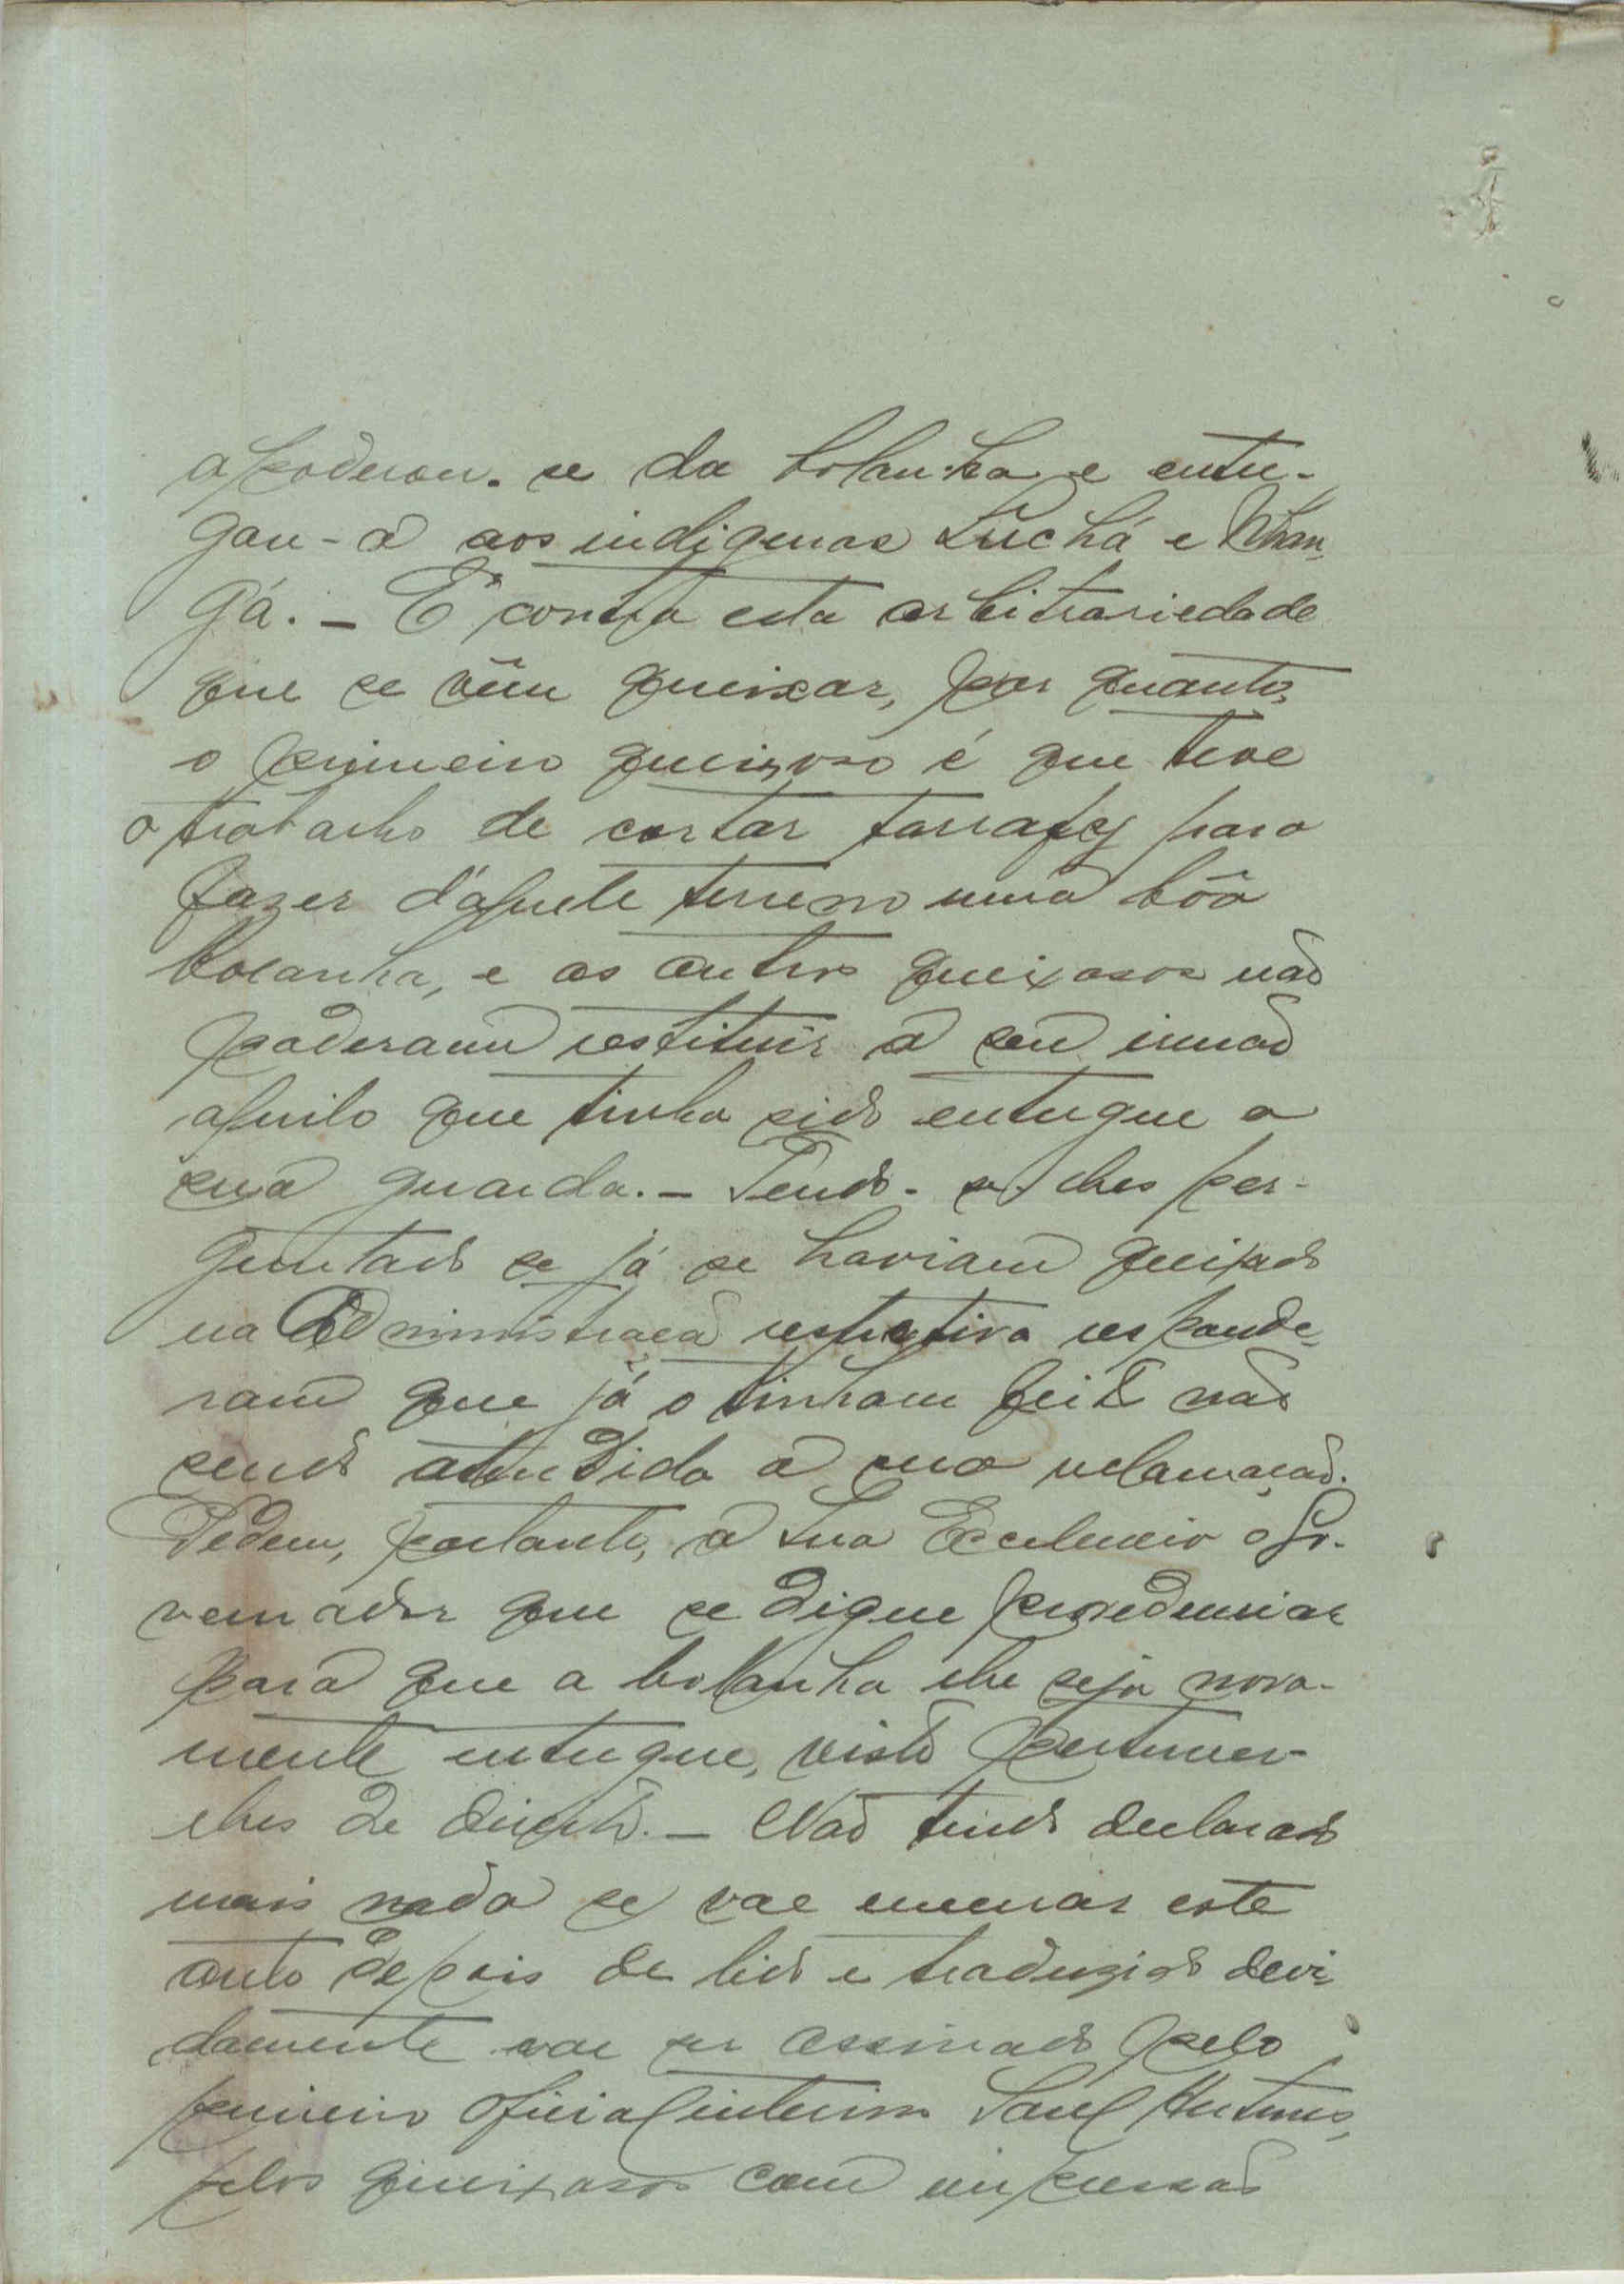 apoderou-se da bolanha e entre-
gou-a aos indigenas Luchá e Nhan-
gá. - É contra esta arbitrariedade
que se vêm queixar, por quanto,
o primeiro queixoso é que teve
o trabalho de cortar tarrafe para
fazer d'aquele terreno uma bôa
bolanha, e os outros queixosos não
poderam restituir a seu irmão
aquilo que tinha sido entregue a
sua guarda. - Tendo-se-lhes per-
guntado se já se haviam queixado
na Administração respectiva responde-
ram que já o tinham feito não
sendo atendida a sua reclamação.
Pedem, portanto, a Sua Excelencia o Go-
vernador que se digne providenciar
para que a bolanha lhe seja nova-
mente entregue, visto pertencer-
lhes de direito. - Não tendo declarado
mais nada se vae encerrar este
auto depois de lido e traduzido devi
damente vae ser assinado pelo
primeiro oficial interino Saul Antunes,
pelos queixosos com impressão